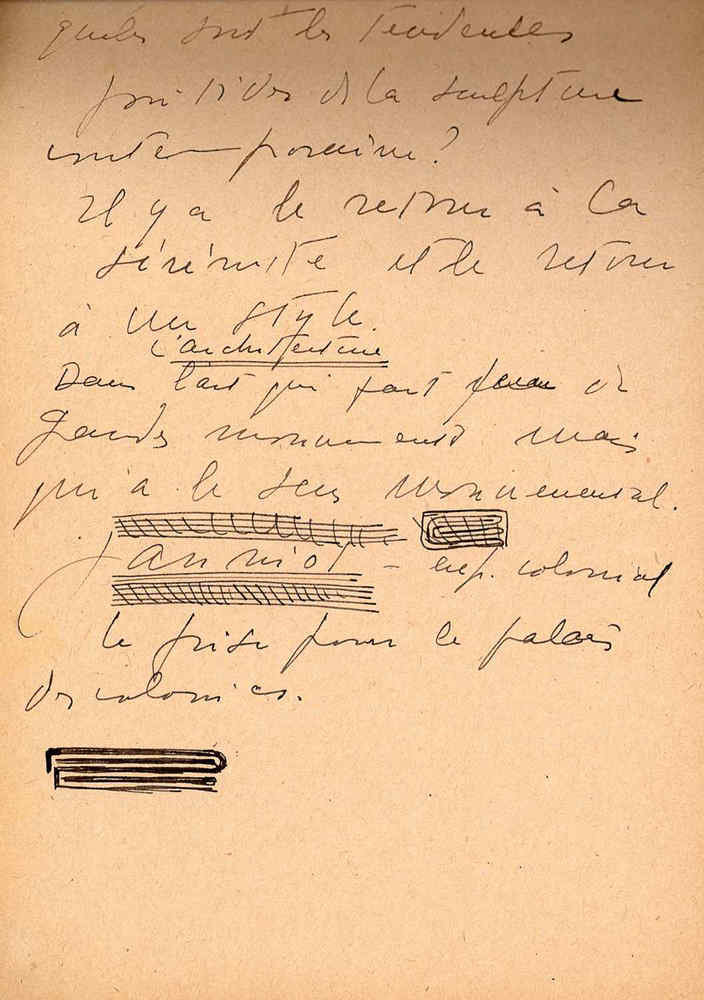 quelles sont les tendences
de la sculpture
contemporaine ?
Il y a le retour à la
sérénité et le retour
à un style.
L'architecture
Dans l'art qui fait de
grandes monuments mais
qui a le sens monumental.
Janniot - exp. colonial
la frise pour le palais
des colonies.